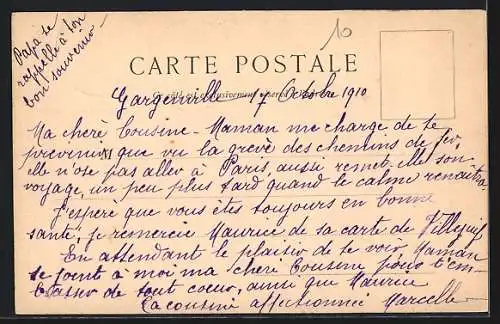 Papa se
rappelle à ton
bon souvenir
10
CARTE POSTALE
Ce côté est exclusivement réservé
Gargenville 17 Octobre 1910
Ma chere Cousine. Maman me charge de te
prevenir que vu la grève des chemins de fer,
elle n'ose pas aller à Paris, aussi remet elle son
voyage, un peu plus tard quand le calme renaitra.
J'espere que vous êtes toujours en bonne
santé, je remercie Maurice de sa carte de Villejuif
En attendant le plaisir de te voir, Maman
se joint à moi ma chere Cousine pour t'em-
brasser de tout coeur, ainsi que Maurice
Ta cousine affectionnée Marcelle